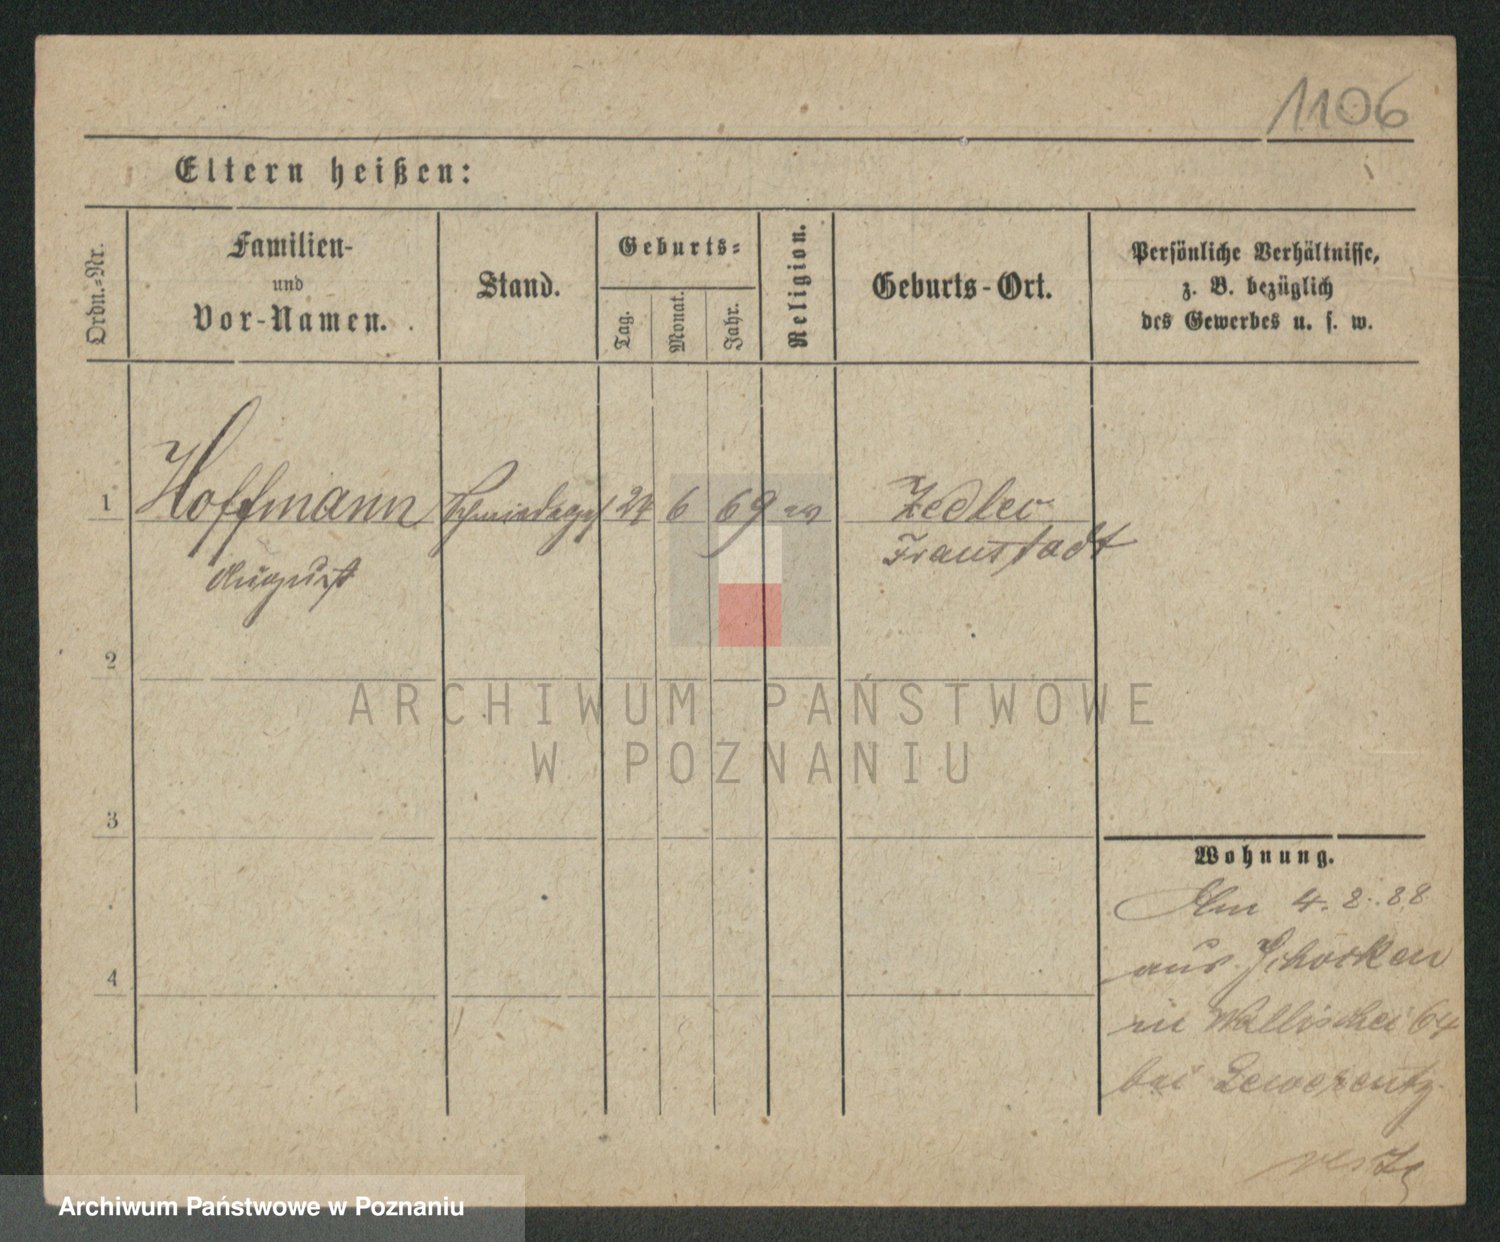 1106
Eltern heißen:
Ordn.-Nr.
Familien-
und
Vor-Namen.
Stand.
Geburts-
Tag.
Monat.
Jahr.
Religion.
Geburts-Ort.
Persönliche Verhältnisse,
z. B. bezüglich
des Gewerbes u. s. w.
1 Hoffmann Schmiedeges 24 6 69 ev Zedlec
August Fraustadt
2
3
4
Wohnung.
Am 4. 8. 88
aus Schocken
in Wallischei 64
bei Lewerentz
ARCHIWUM PAŃSTWOWE
W POZNANIU
Archiwum Państwowe w Poznaniu